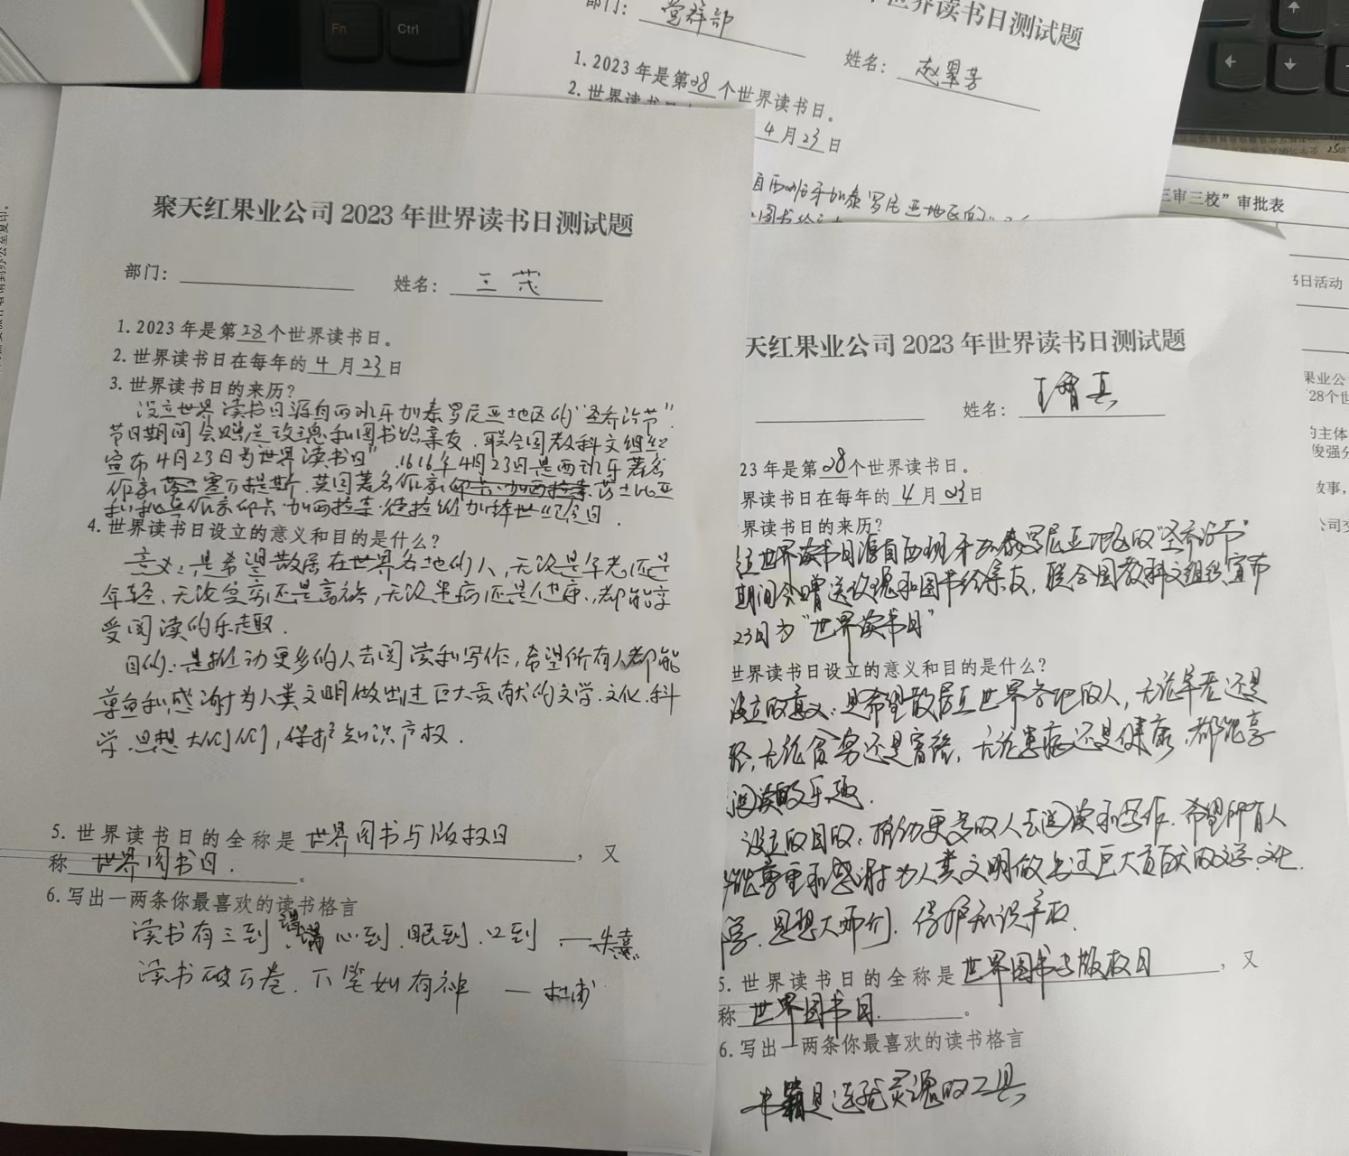 Fn
Ctrl
世界读书日测试题
部门：党群部
姓名：赵翠芳
1.2023年是第28个世界读书日。
2.世界读书日
4月23日
自西班牙加泰罗尼亚地区的
三审三校”审批表
书日活动
果业公
28个世
的主体
故事，
公司
聚天红果业公司2023年世界读书日测试题
部门：
姓名：王茂
1.2023年是第28个世界读书日。
2.世界读书日在每年的4月23日
3.世界读书日的来历?
设立世界读书日源自西班牙加泰罗尼亚地区的“圣乔治节”.
节日期间会赠送玫瑰和图书给亲友.联合国教科文组织
宣布4月23日为“世界读书日”.1616年4月23日是西班牙著名
作家塞万提斯.英国著名作家莎士比亚
加西拉索·德拉维加辞世纪念日.
4.世界读书日设立的意义和目的是什么?
意义:是希望散居在世界各地的人,无论是年老还是
年轻.无论贫穷还是富裕,无论患病还是健康.都能享
受阅读的乐趣.
目的:是推动更多的人去阅读和写作,希望所有人都能
尊重和感谢为人类文明做出过巨大贡献的文学.文化.科
学.思想大师们,保护知识产权.
5.世界读书日的全称是世界图书与版权日，又
称世界图书日.。
6.写出一两条你最喜欢的读书格言
读书有三到 心到.眼到.口到 ——朱熹
读书破万卷.下笔如有神 —杜甫
天红果业公司2023年世界读书日测试题
姓名：
23年是第28个世界读书日。
界读书日在每年的4月23日
界读书日的来历?
立世界读书日源自西班牙加泰罗尼亚地区的“圣乔治节”
期间会赠送玫瑰和图书给亲友,联合国教科文组织宣布
23日为“世界读书日”
世界读书日设立的意义和目的是什么?
设立的意义:是希望散居在世界各地的人,无论年老还是
轻,无论贫穷还是富裕,无论患病还是健康,都能享
阅读的乐趣.
设立的目的,推动更多的人去阅读和写作.希望所有人
能尊重和感谢为人类文明做出过巨大贡献的文学.文化.
学.思想大师们,保护知识产权
5.世界读书日的全称是世界图书与版权日，又
称世界图书日.。
6.写出一两条你最喜欢的读书格言
书籍是造就灵魂的工具